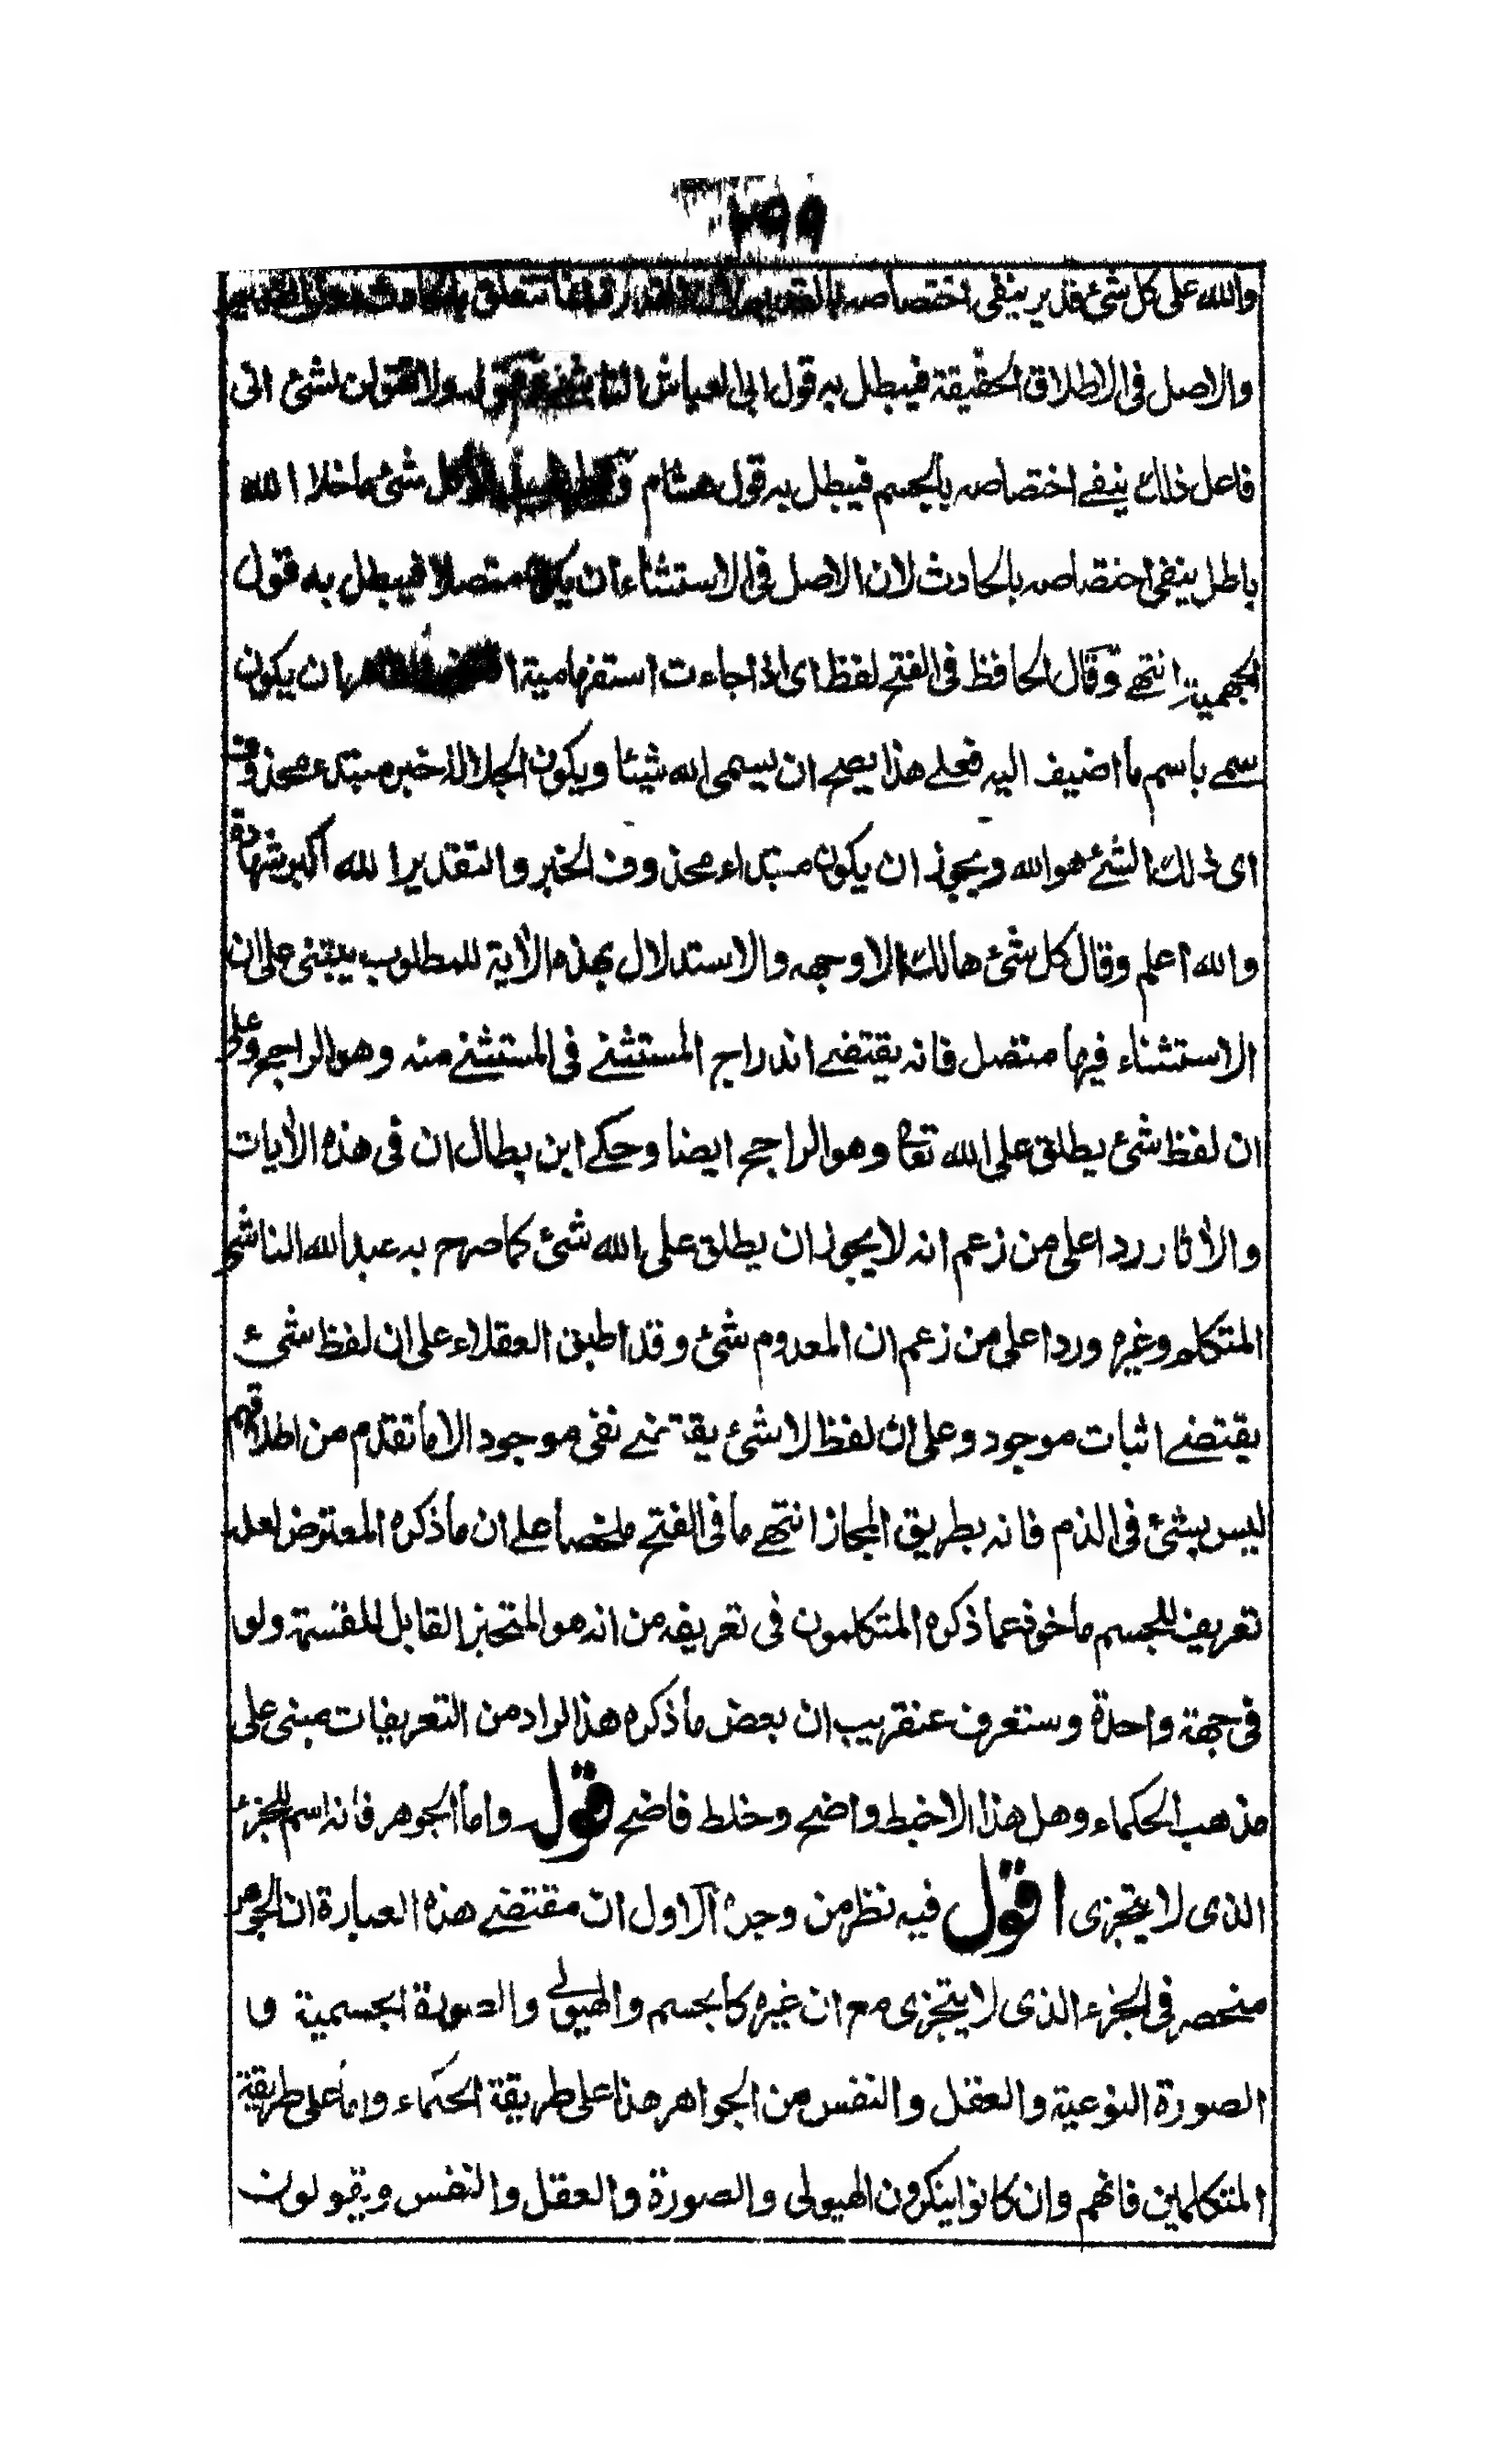 والله على كل شئ قدير ينفى اختصاصه بالقديم لان القدرة انما تتعلق بالحادث دون القديم
والاصل فى الاطلاق الحقيقة فيبطل به قول ابى العباش الناشئة وقوله ولا تقولن لشئ انى
فاعل ذلك ينفے اختصاصه بالجسم فيبطل به قول هشام وقول لبيد الا كل شئ ماخلا الله
باطل ينفى اختصاصه بالحادث لان الاصل فى الاستثناء ان يكون متصلا فيبطل به قول
الجهمية انتهے وقال الحافظ فى الفتح لفظ اى اذا جاءت استفهامية ان يكون
سمے باسم ما اضيف اليه فعلے هذا يصح ان يسمى الله شيئا ويكون الجلالة خبر مبتدء محذوف
اى ذلك الشئ هو الله ويجوز ان يكون مبتداء محذوف الخبر والتقدير الله اكبر شهادة
والله اعلم وقال كل شئ هالك الا وجهه والاستدلال بهذه الأية للمطلوب يبتنى على ان
الاستثناء فيها متصل فانه يقتضے اندراج المستثنے فى المستثنے منه وهو الراجح وعلى
ان لفظ شئ يطلق على الله تعا وهو الراجح ايضا وحكے ابن بطال ان فى هذه الأيات
والأثار ردا على من زعم انه لا يجوز ان يطلق على الله شئ كما صرح به عبد الله الناشئ
المتكلم وغيره وردا على من زعم ان المعدوم شئ وقد اطبق العقلاء على ان لفظ شئ
يقتضے اثبات موجود وعلى ان لفظ لا شئ يقتضے نفى موجود الا ما تقدم من اطلاقهم
ليس بشئ فى الذم فانه بطريق المجاز انتهے ما فى الفتح ملخصا علے ان ما ذكره المعترض لعله
تعريف للجسم ماخوذ عما ذكره المتكلمون فى تعريفه من انه هو المتحيز القابل للقسمة ولو
فى جهة واحدة وستعرف عنقريب ان بعض ما ذكره هذا الراد من التعريفات مبنى على
مذهب الحكماء وهل هذا الا خبط واضح وخلط فاضح قوله واما الجوهر فانه اسم للجزء
الذى لا يتجزى اقول فيه نظر من وجوه الاول ان مقتضے هذه العبارة ان الجوهر
منحصر فى الجزء الذى لا يتجزى مع ان غيره كالجسم والهيولے والصورة الجسمية و
الصورة النوعية والعقل والنفس من الجواهر هذا على طريقة الحكماء واما على طريقة
المتكلمين فانهم وان كانوا ينكرون الهيولى والصورة والعقل والنفس ويقولون